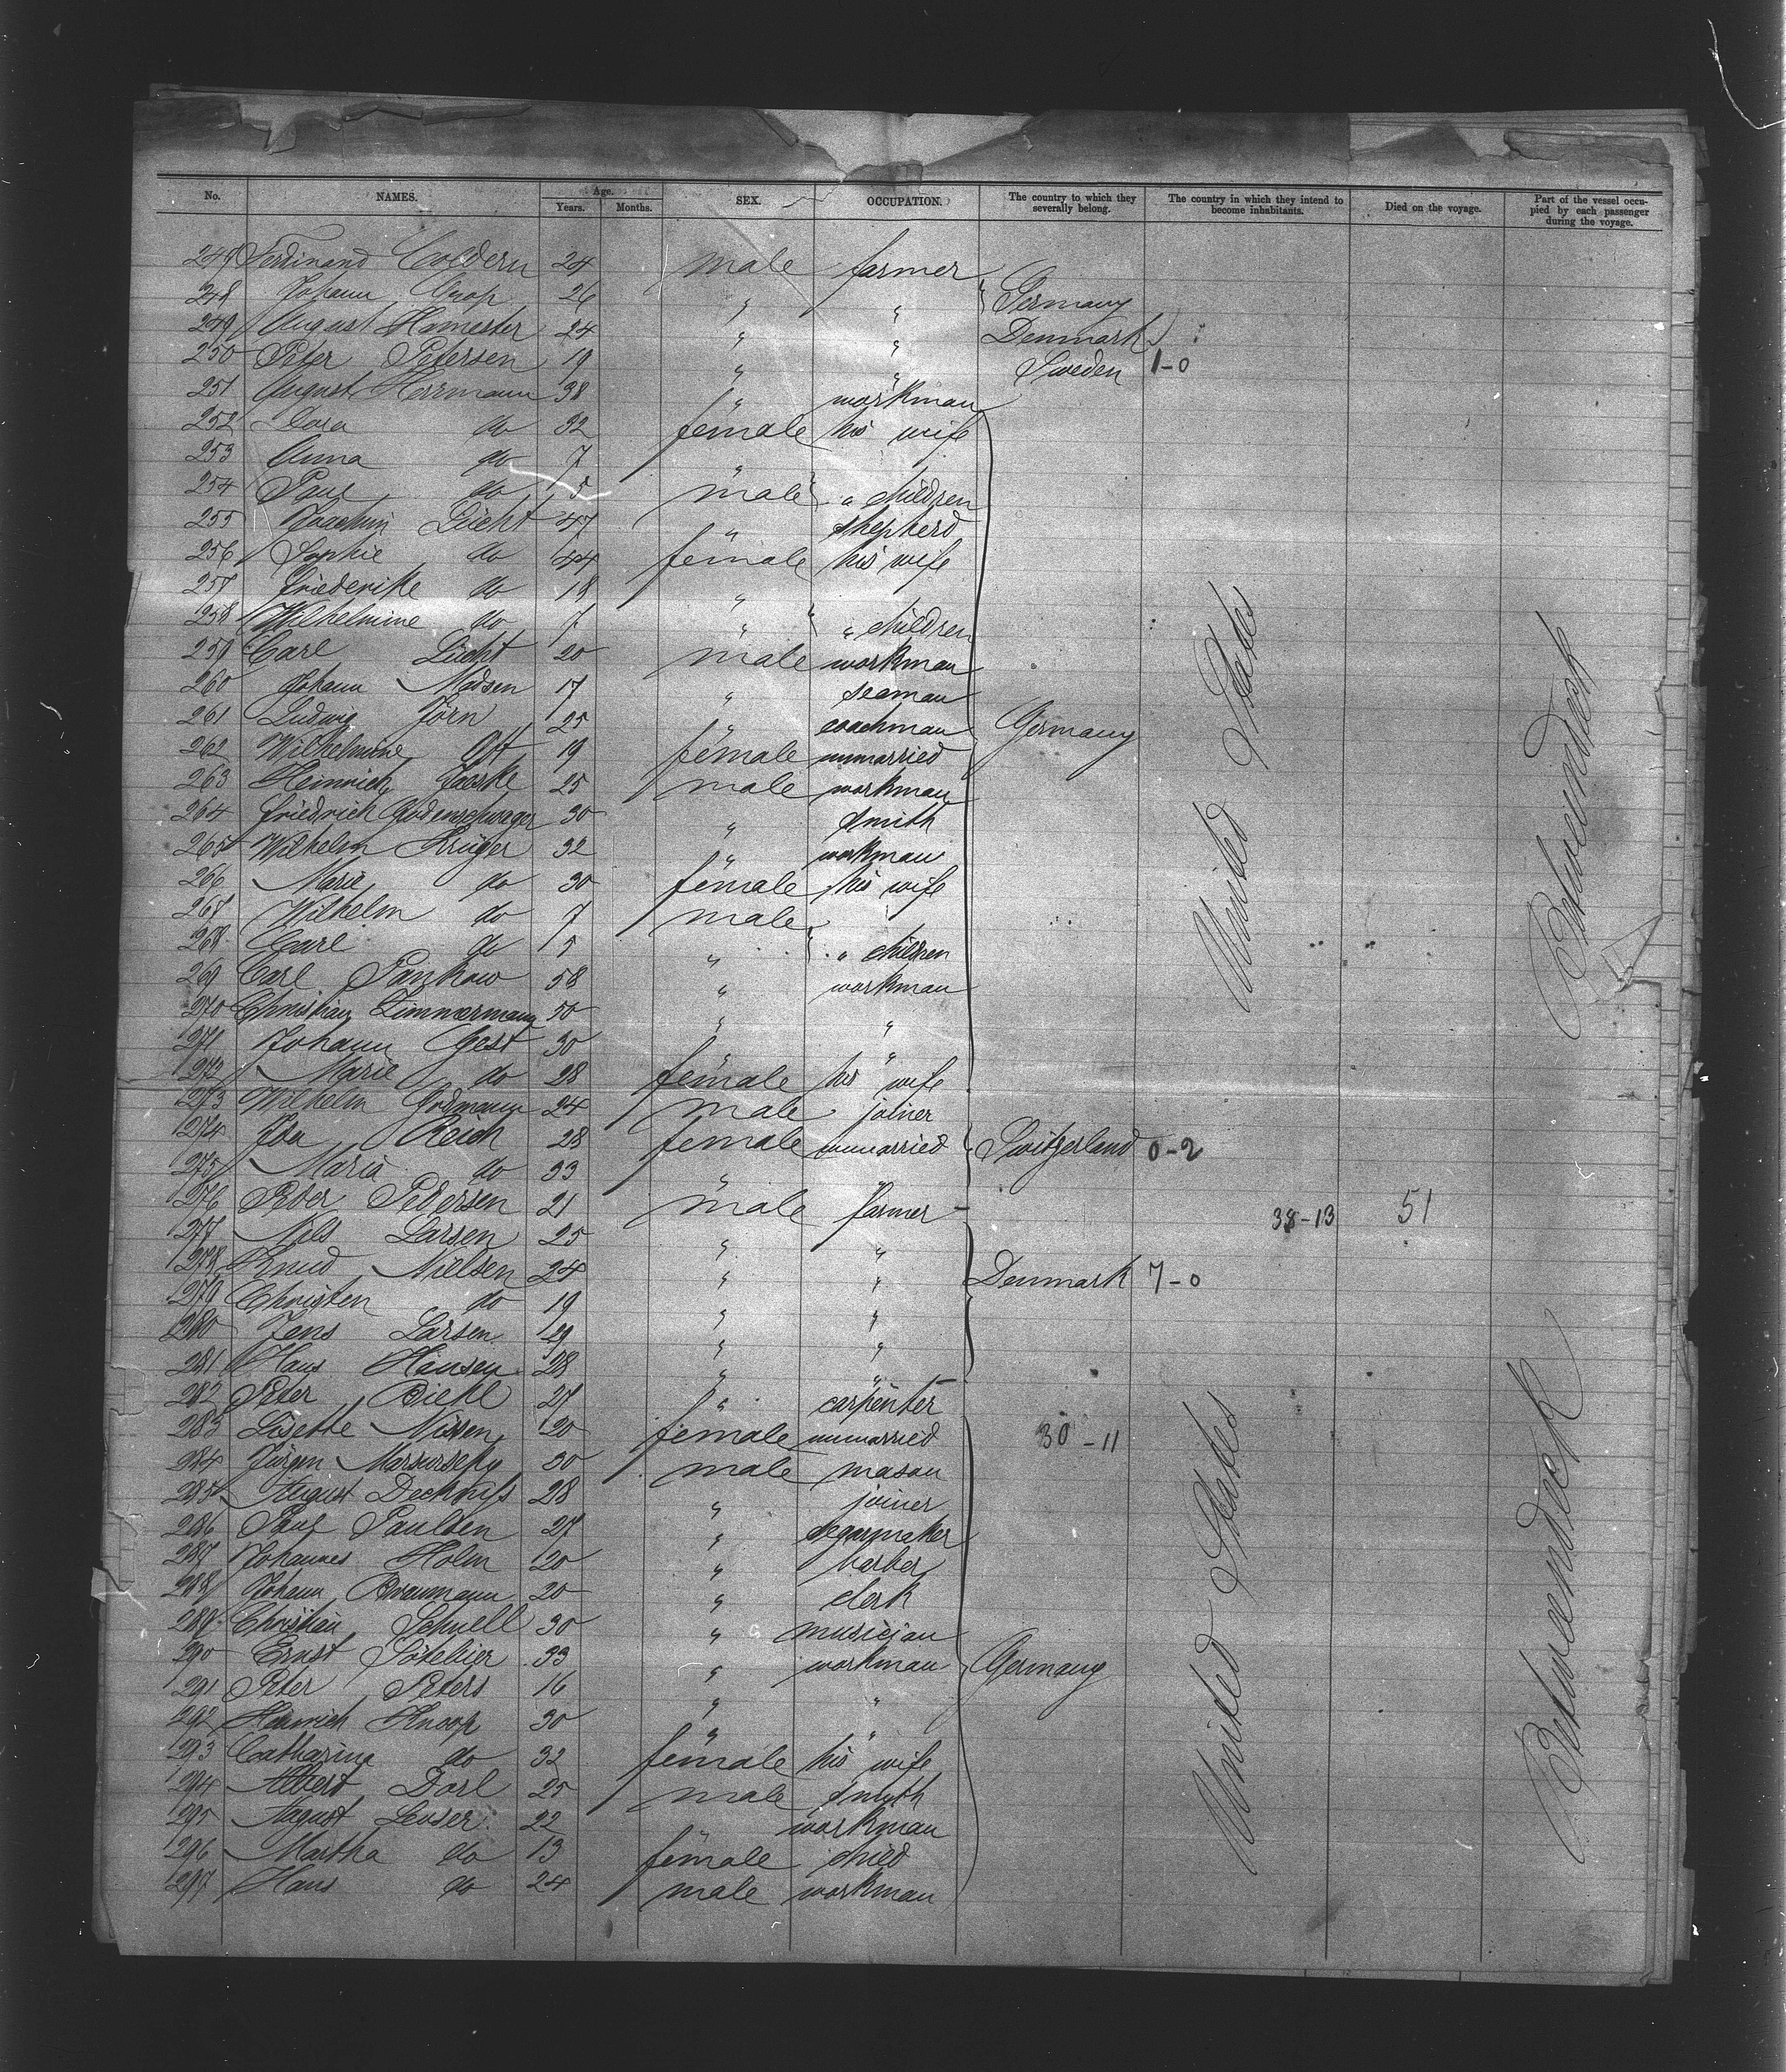 No. NAMES. Age. Years. Months. SEX. OCCUPATION. The country to which they severally belong. The country in which they intend to become inhabitants. Died on the voyage. Part of the vessel occupied by each passenger during the voyage.
Ferdinand 24 male farmer
248 Johann 26 " " Germany
249 August Hamester 24 " " Denmark
250 Peter Petersen 19 " " Sweden 1-0
251 August Herrmann 38 " workman
252 Dora do 32 female his wife
253 Anna do 7 "
254 Paul do 5 male " children
255 Joachim Lücht 47 " shepherd
256 Sophie do 44 female his wife
257 Friederike do 18 "
258 Wilhelmine do 7 " " children
259 Carl Lücht 20 male workman
260 Johann Madsen 17 " seaman
261 Ludwig Jörn 25 " coachman Germany
262 Wilhelmine 19 female unmarried
263 Heinrich 25 male workman
264 Friedrich Godenschwager 30 " smith
265 Wilhelm Krüger 32 " workman
266 Marie do 30 female his wife
267 Wilhelm do 7 male
268 Carl do 5 " " children
269 Carl Pankow 58 " workman
270 Christian Zimmermann 50 " "
271 Johann Gest 30 " "
272 Marie do 28 female his wife
273 Wilhelm 24 male joiner
274 Ida Reich 28 female unmarried Switzerland 0-2
275 Maria do 33 " "
276 Peder Pedersen 21 male farmer 38-13 51
277 Nils Larsen 25 " "
278 Knud Nielsen 24 " " Denmark 7-0
279 Christen do 19 " "
280 Jens Larsen 29 " "
281 Hans Hansen 28 " "
282 Peter Biehl 27 " carpenter
283 Lisette Nissen 20 female unmarried 30-11
284 Jürgen 30 male mason
285 August 28 " joiner
286 Paul Paulsen 27 " segarmaker
287 Johannes Holm 20 " barber
288 Johann 20 " clerk
289 Christian Schnell 30 " musician
290 Ernst 33 " workman Germany
291 Peter Peters 16 " "
292 Heinrich Knoop 30 " "
293 Catharina do 32 female his wife
294 Albert Dorl 25 male smith
295 August Leuser 22 " workman
296 Martha do 13 female child
297 Hans do 24 male workman
United States
Betweendeck
United States
Betweendeck